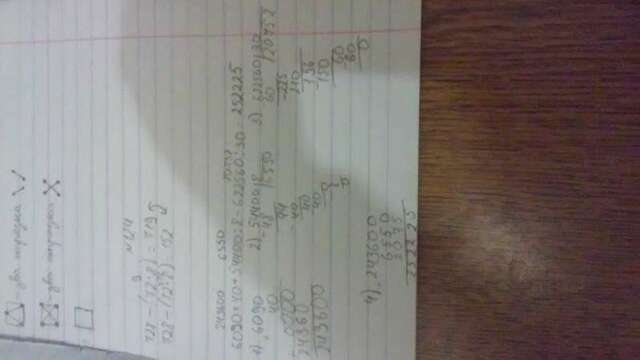 - два отрезка
- два отрезка
-
№ 124
9
728 - (72:8) = 719
728 - (72:8) = 152
243600 6550 20752
6090 * 40 + 54400:8 - 622560:30 = 252225
1) 6090
40
0000
24360
243600
2) 54400 8
48 6550
44
40
40
40
0
3) 622560 30
60 20752
225
210
156
150
60
60
0
4) 243600
6550
2075
252225